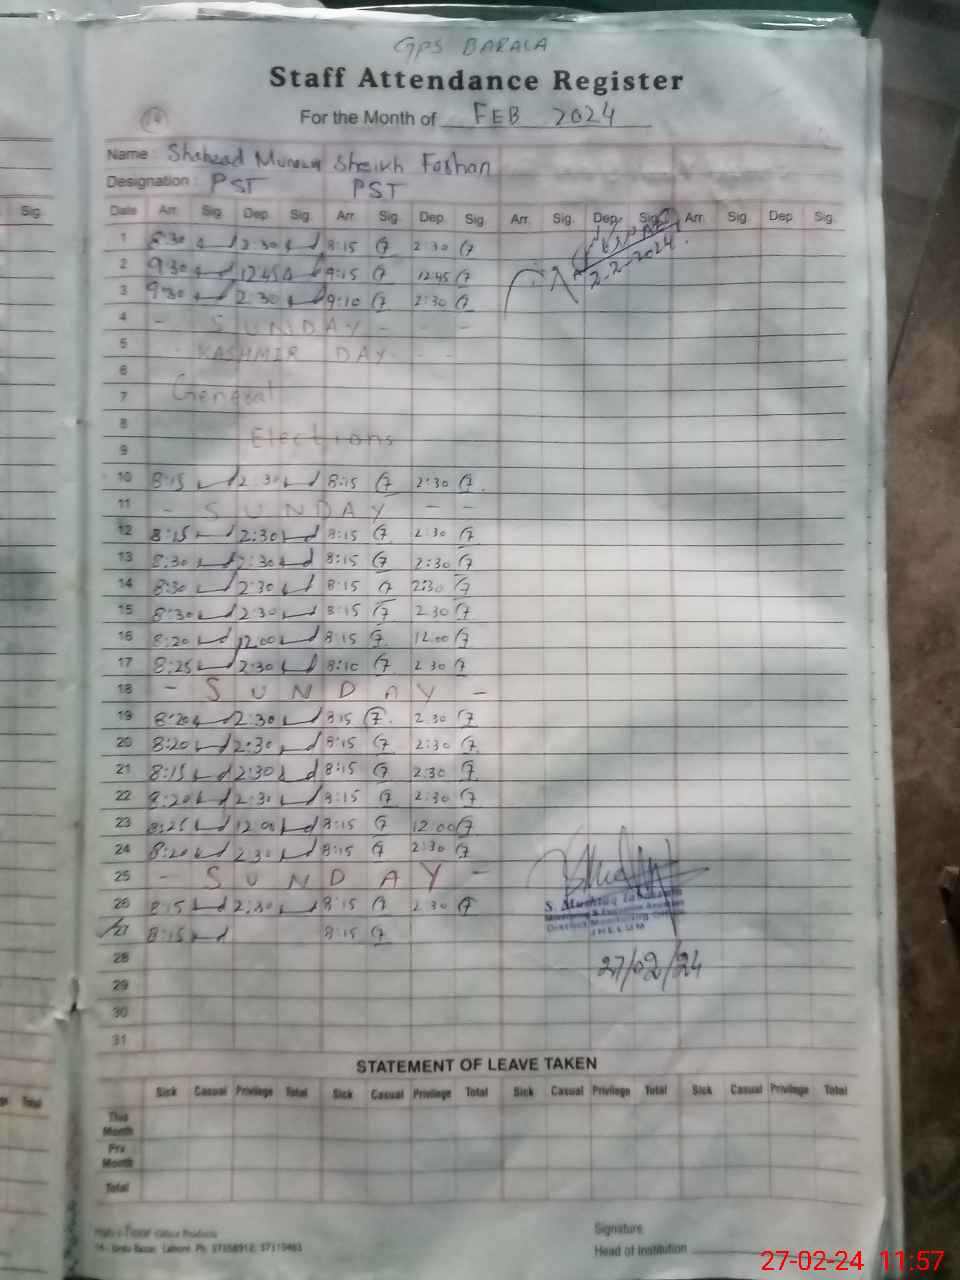 GPS BARALA
Staff Attendance Register
For the Month of FEB 2024
Name : Shahzad Sheikh Foshan
Designation : PST PST
Sig. Date Arr. Sig. Dep. Sig. Arr. Sig. Dep. Sig. Arr. Sig. Dep. Sig. Arr. Sig. Dep. Sig.
1 8:30 2:30 8:15 2:30
2 9:30 12:45 9:15 12:45
2-2-2024
3 9:30 2:30 9:10 2:30
4 - SUNDAY - - -
5 - KASHMIR DAY - - -
6
7 General
8
9 Elections
10 8:15 2:30 8:15 2:30
11 - SUNDAY - -
12 8:15 2:30 8:15 2:30
13 8:30 2:30 8:15 2:30
14 8:30 2:30 8:15 2:30
15 8:30 2:30 8:15 2:30
16 8:20 12:00 8:15 12:00
17 8:25 2:30 8:10 2:30
18 - SUNDAY -
19 8:20 2:30 8:15 2:30
20 8:20 2:30 8:15 2:30
21 8:15 2:30 8:15 2:30
22 8:20 2:30 8:15 2:30
23 8:25 12:00 8:15 12:00
24 8:20 2:30 8:15 2:30
25 - SUNDAY -
26 8:15 2:30 8:15 2:30
S. Mushtaq
District Monitoring
JHELUM
27 8:15 8:15
27/02/24
28
29
30
31
STATEMENT OF LEAVE TAKEN
Total Sick Casual Privilege Total Sick Casual Privilege Total Sick Casual Privilege Total Sick Casual Privilege Total
This Month
Prv Month
Total
Urdu Bazar, Lahore. Ph: 37358912, 37310463
Signature
Head of Institution
27-02-24 11:57